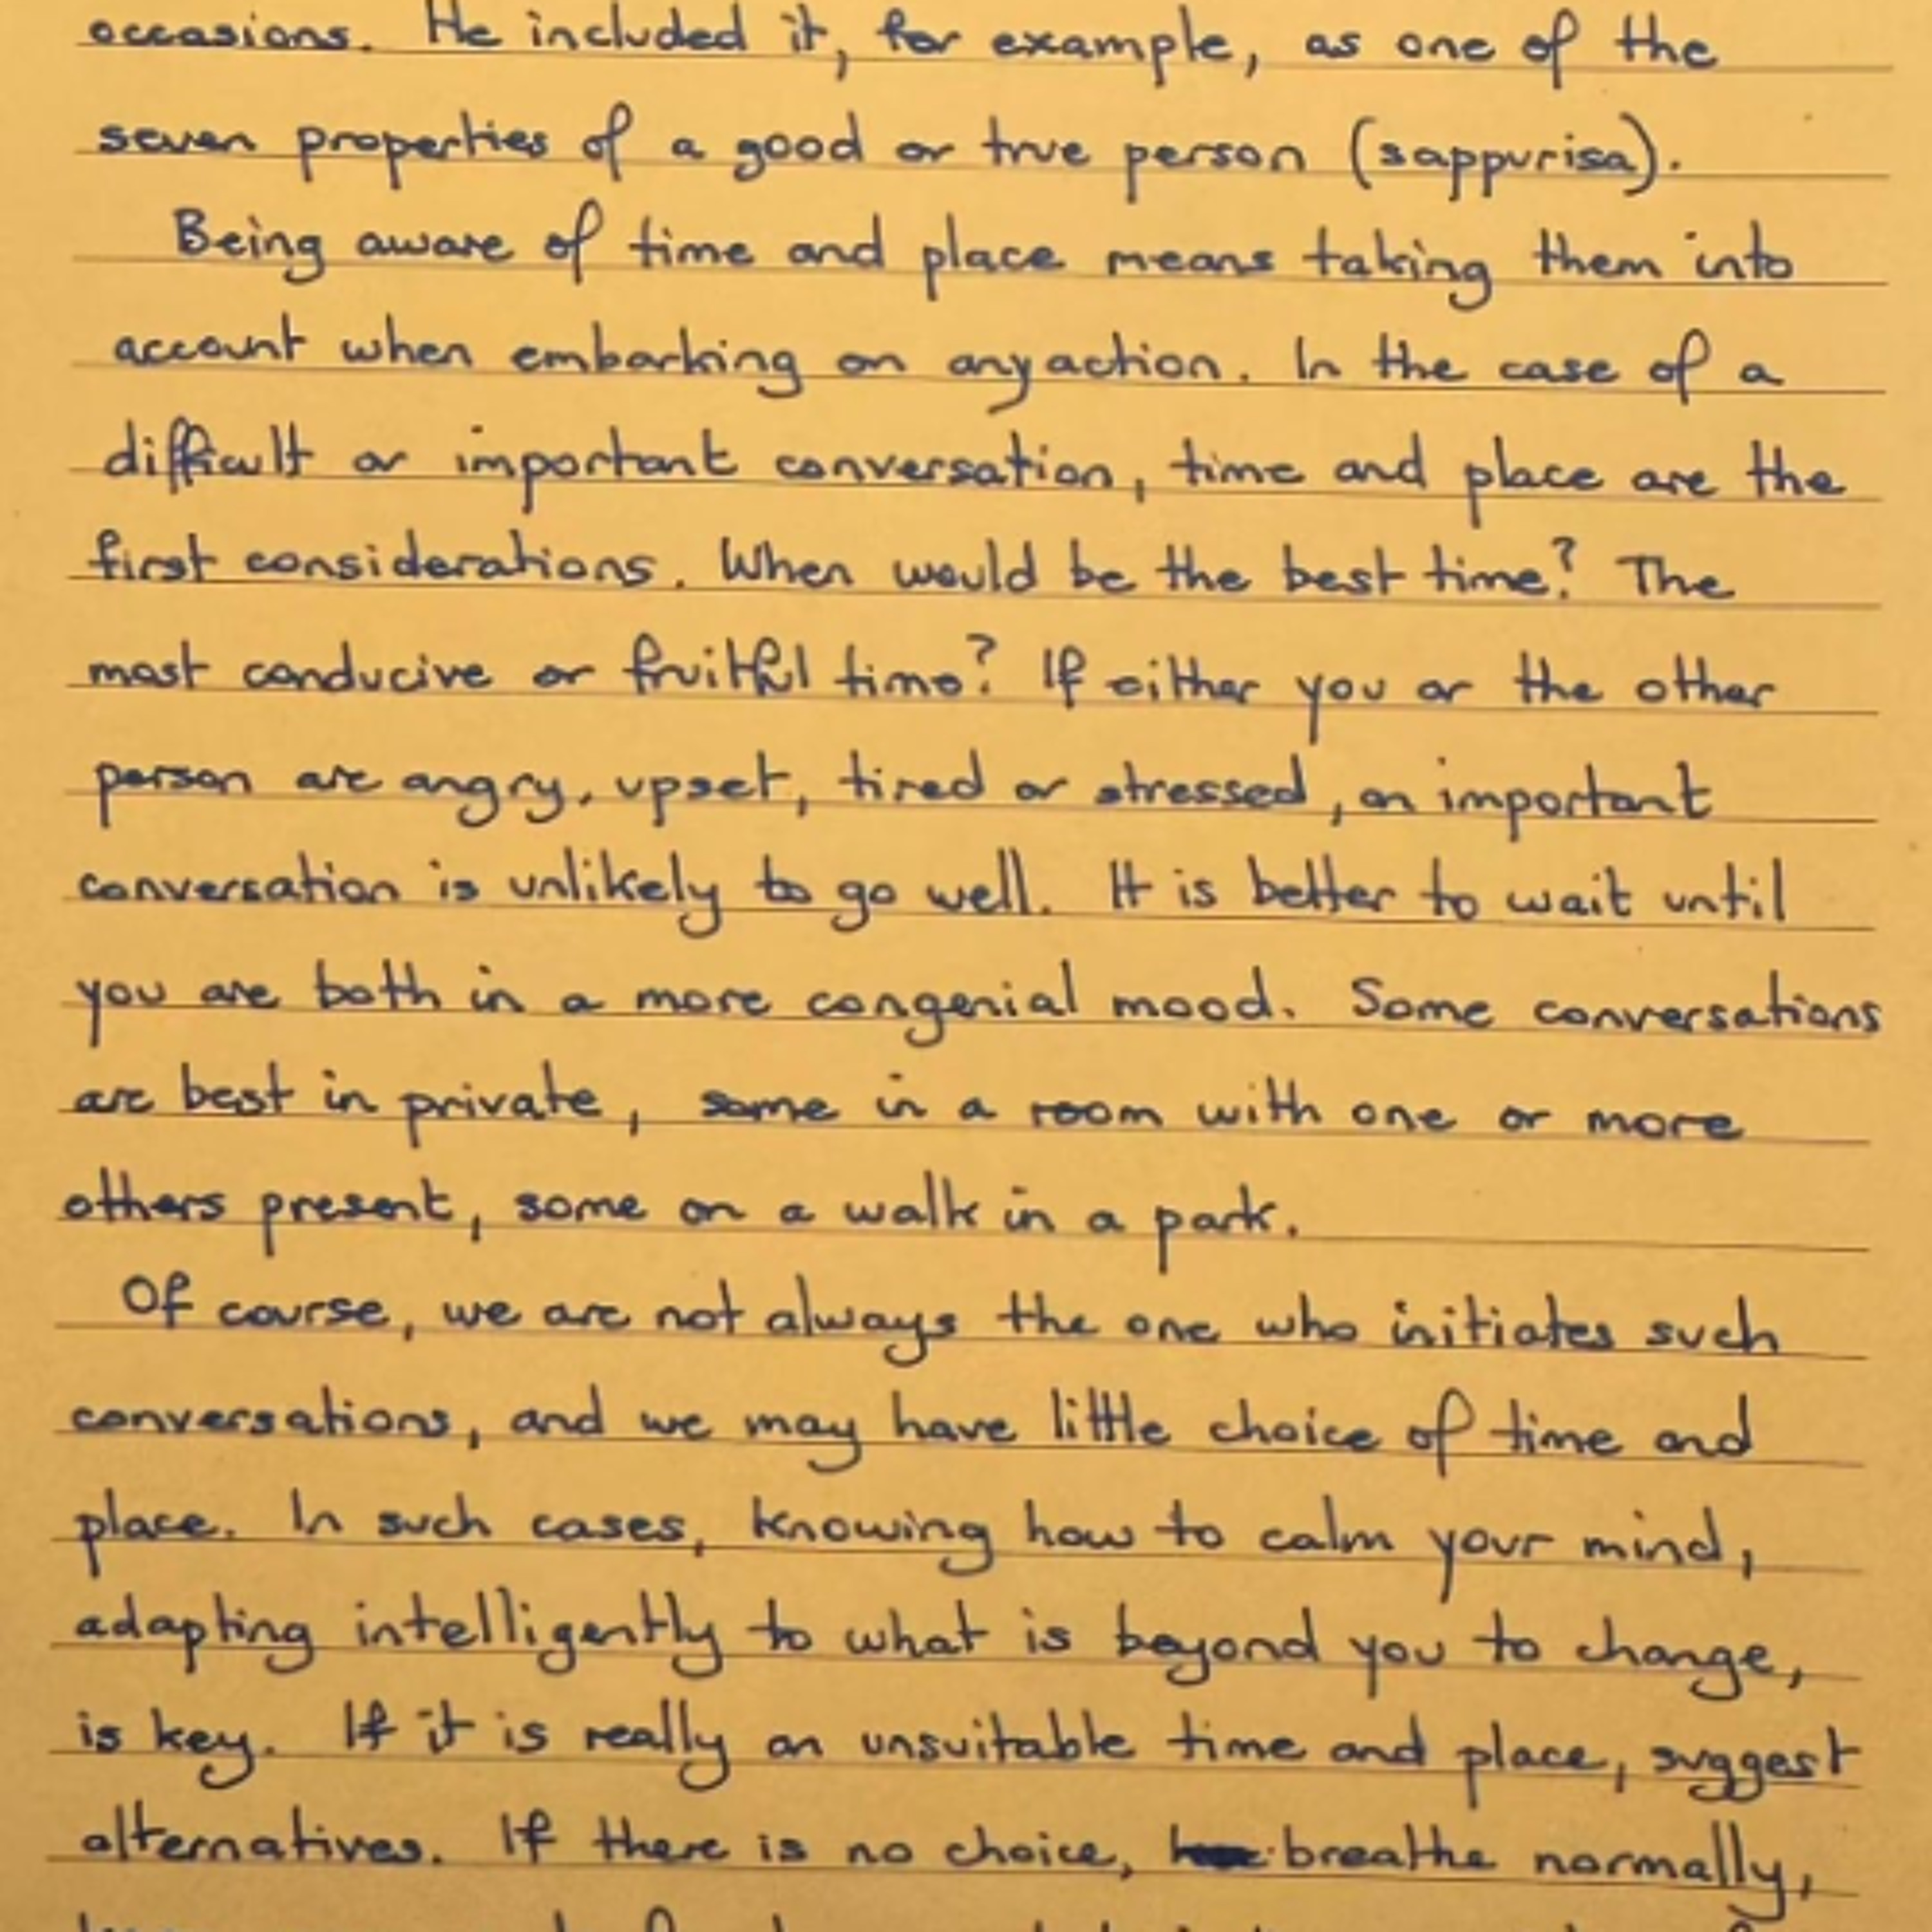 occasions. He included it, for example, as one of the
seven properties of a good or true person (sappurisa).
Being aware of time and place means taking them into
account when embarking on any action. In the case of a
difficult or important conversation, time and place are the
first considerations. When would be the best time? The
most conducive or fruitful time? If either you or the other
person are angry, upset, tired or stressed, an important
conversation is unlikely to go well. It is better to wait until
you are both in a more congenial mood. Some conversations
are best in private, some in a room with one or more
others present, some on a walk in a park.
Of course, we are not always the one who initiates such
conversations, and we may have little choice of time and
place. In such cases, knowing how to calm your mind,
adapting intelligently to what is beyond you to change,
is key. If it is really an unsuitable time and place, suggest
alternatives. If there is no choice, breathe normally,